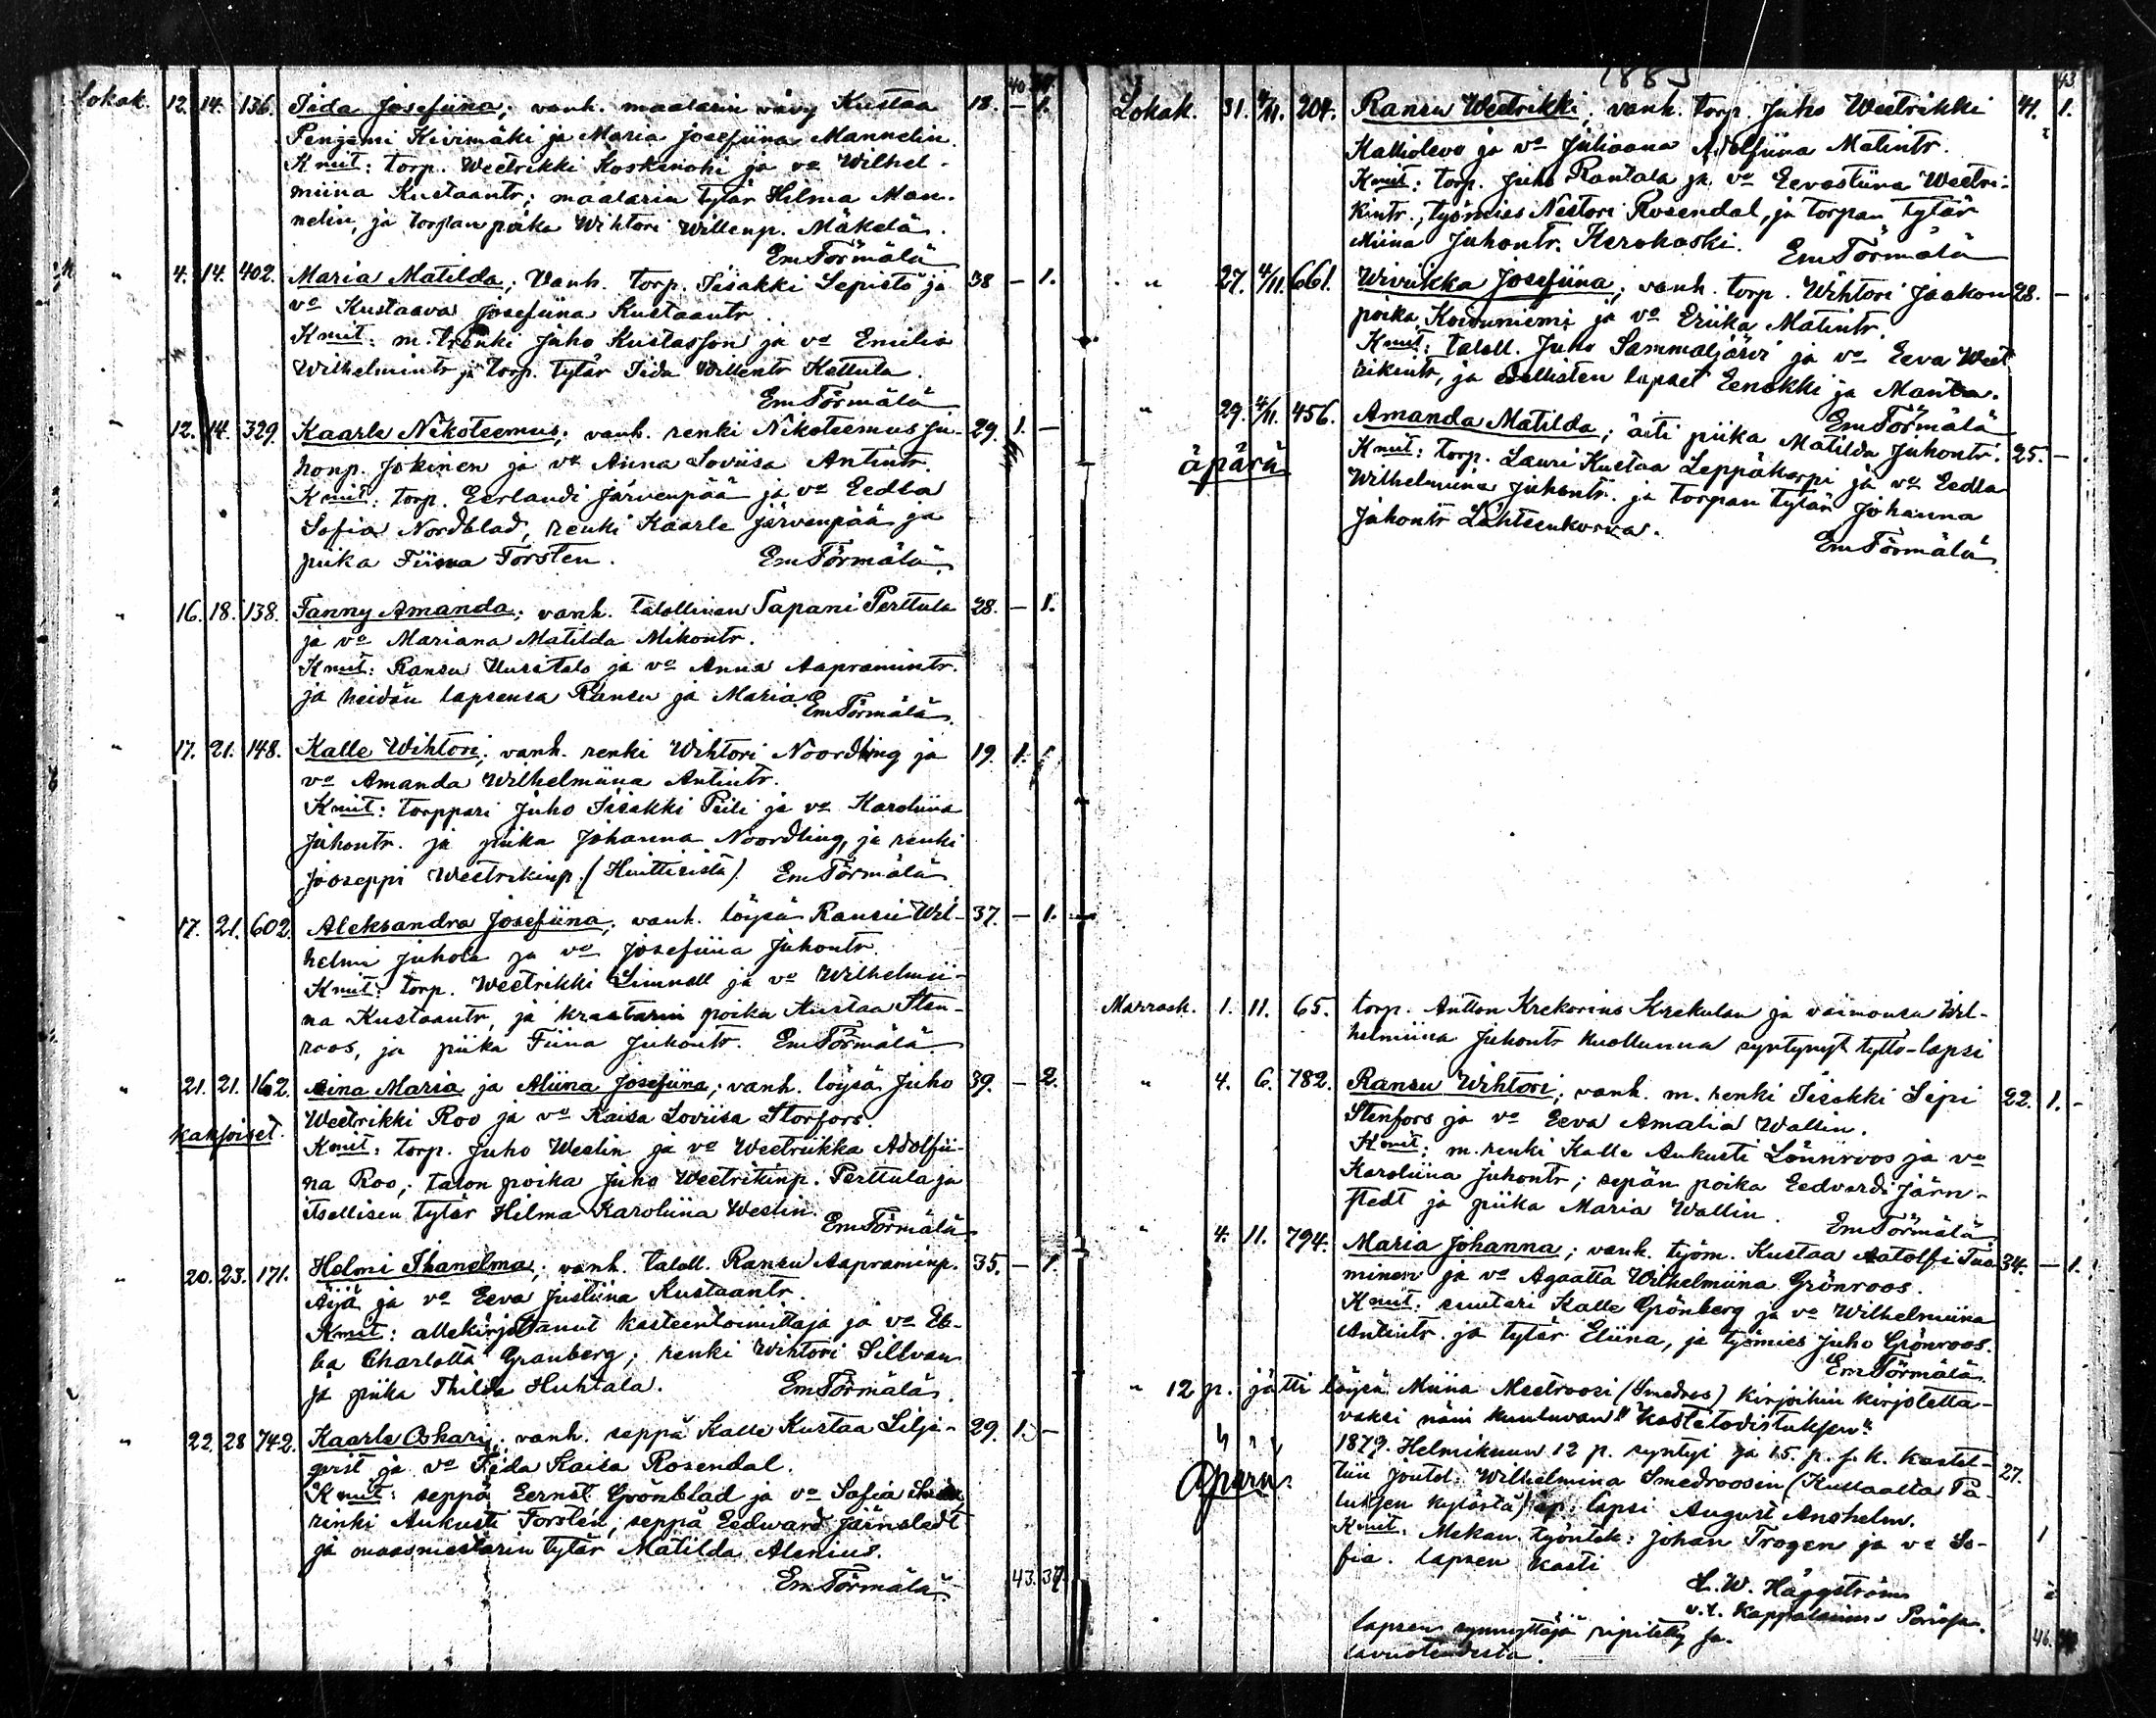 40 37
Lokak. 12. 14. 136. Iida Josefiina; vanh. maalarin vävy Kustaa 18. — 1.
Penjami Kivimäki ja Maria Josefiina Mannelin.
Kmit: torp. Weetrikki Koskenohi ja vo Wilhel-
miina Kustaantr; maalarin tytär Hilma Man-
nelin, ja torpan poika Wihtori Willenp. Mäkelä.
Em Törmälä
" 4. 14. 402. Maria Matilda; Vanh. torp. Iisakki Lepistö ja 38 — 1.
vo Kustaava Josefiina Kustaantr.
Kmit: m. renki Juho Kustasson ja vo Emilia
Wilhelmintr ja torp. tytär Iida Willentr Kattula.
Em Törmälä
" 12. 14. 329. Kaarle Nikoteemus; vanh. renki Nikoteemus Ju- 29. 1. —
honp. Jokinen ja vo Anna Loviisa Antintr.
Kmit: torp. Eerlandi Järvenpää ja vo Eedla
Sofia Nordblad, renki Kaarle Järvenpää ja
piika Fiina Forsten. Em Törmälä
" 16. 18. 138. Fanny Amanda; vanh. talollinen Tapani Perttula 28. — 1.
ja vo Mariana Matilda Mikontr.
Kmit: Ransu Uusitalo ja vo Anna Aapramintr.
ja heidän lapsensa Ransu ja Maria. Em Törmälä
" 17. 21. 148. Kalle Wihtori; vanh. renki Wihtori Noordling ja 19. 1.
vo Amanda Wilhelmiina Antintr.
Kmit: torppari Juho Iisakki Piili ja vo Karoliina
Juhontr. ja piika Johanna Noordling, ja renki
Jooseppi Weetrikinp. (Huittisista) Em Törmälä
" 17. 21. 602. Aleksandra Josefiina; vanh. löysä Ransu Wil- 37. — 1.
helmi Juhola ja vo Josefiina Juhontr.
Kmit: torp. Weetrikki Limnell ja vo Wilhelmii-
na Kustaantr, ja kraatarin poika Kustaa Sten-
roos, ja piika Fiina Juhontr. Em Törmälä
" 21. 21. 162. Aina Maria ja Miina Josefiina; vanh. löysä Juho 39. — 2.
kaksoiset. Weetrikki Roo ja vo Kaisa Loviisa Storfors.
Kmit: torp. Juho Weslin ja vo Weetriikka Adolfii-
na Roo; talon poika Juho Weetrikinp. Perttula ja
itsellisen tytär Hilma Karoliina Weslin.
Em Törmälä
" 20. 23. 171. Helmi Ihanelma; vanh. taloll. Ransu Aapraminp. 35. — 1.
Äijä ja vo Eeva Justiina Kustaantr.
Kmit: allekirjottanut kasteentoimittaja ja vo Eb-
ba Charlotta Granberg; renki Wihtori Sillvan
ja piika Thilda Huhtala. Em Törmälä
" 22 28 742. Kaarle Oskari; vanh. seppä Kalle Kustaa Lilje- 29. 1. —
qvist ja vo Iida Kaisa Rosendal.
Kmit: seppä Eernst Grönblad ja vo Sofia
rinki Aukusti Forstén, seppä Eedward Järnstedt
ja maasmestarin tytär Matilda Alenius.
Em Törmälä
43. 37
1885
43
Lokak. 31. 4/11. 204. Ransu Weetrikki; vanh. torp. Juho Weetrikki 41. 1.
Kalliolevo ja vo Juliaana Adolfiina Matintr.
Kmit: torp. Juho Rantala ja vo Eevastiina Weetri-
kintr., työmies Nestori Rosendal, ja torpan tytär
Miina Juhontr. Kerokoski. Em Törmälä
" 27. 4/11. 661. Wiviikka Josefiina; vanh. torp. Wihtori Jaakon 28. —
poika Koivuniemi ja vo Eriika Matintr.
Kmit: taloll. Juho Sammaljärvi ja vo Eeva Weet
rikintr, ja edellisten lapset Eenokki ja Manta.
Em Törmälä
" 29. 4/11. 456. Amanda Matilda; äiti piika Matilda Juhontr. 25. —
äpärä Kmit: torp. Lauri Kustaa Leppäkorpi ja vo Eedla
Wilhelmiina Juhontr. ja torpan tytär Johanna
Juhontr Lähteenkorva.
Em Törmälä
Marrask. 1. 11. 65. torp. Antton Krekorius Krekulan ja vaimonsa Wil-
helmiina Juhontr kuollunna syntynyt tyttö-lapsi
" 4. 6. 782. Ransu Wihtori; vanh. m. renki Iisakki Sipi 22. 1. -
Stenfors ja vo Eeva Amalia Wallin.
Kmit: m. renki Kalle Aukusti Lönnroos ja vo
Karoliina Juhontr; sepän poika Eedvardi Järn-
stedt ja piika Maria Wallin.
Em Törmälä
" 4. 11. 794. Maria Johanna; vanh. työm. Kustaa Aatolfi Tuo 34. — 1.
minen ja vo Agaatta Wilhelmiina Grönroos.
Kmit: suutari Kalle Grönberg ja vo Wilhelmiina
Antintr. ja tytär Eliina, ja työmies Juho Grönroos.
Em Törmälä
" 12 p. jätti löysä Miina Meetroosi (Smedros) kirjoihin kirjotetta-
vaksi näin kuuluvan "kastetodistuksen".
1879. Helmikuun 12 p. syntyi ja 15. p. s. k. kastet-
Äpärä. tiin Joutol. Wilhelmina Smedroosin (Kullaalta Pa- 27.
luksen kylästä) äp. lapsi August Anshelm.
Kmit. Mekan. työntek: Johan Trogen ja vo So- 1
fia. lapsen kasti
L. W. Häggström
v.t. Kappalainen Porissa.
lapsen synnyttäjä ripitetty ja.
46.